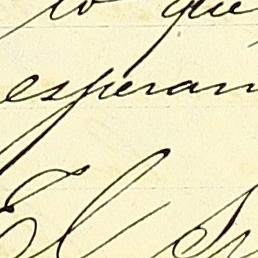 lo que
esperan
El S